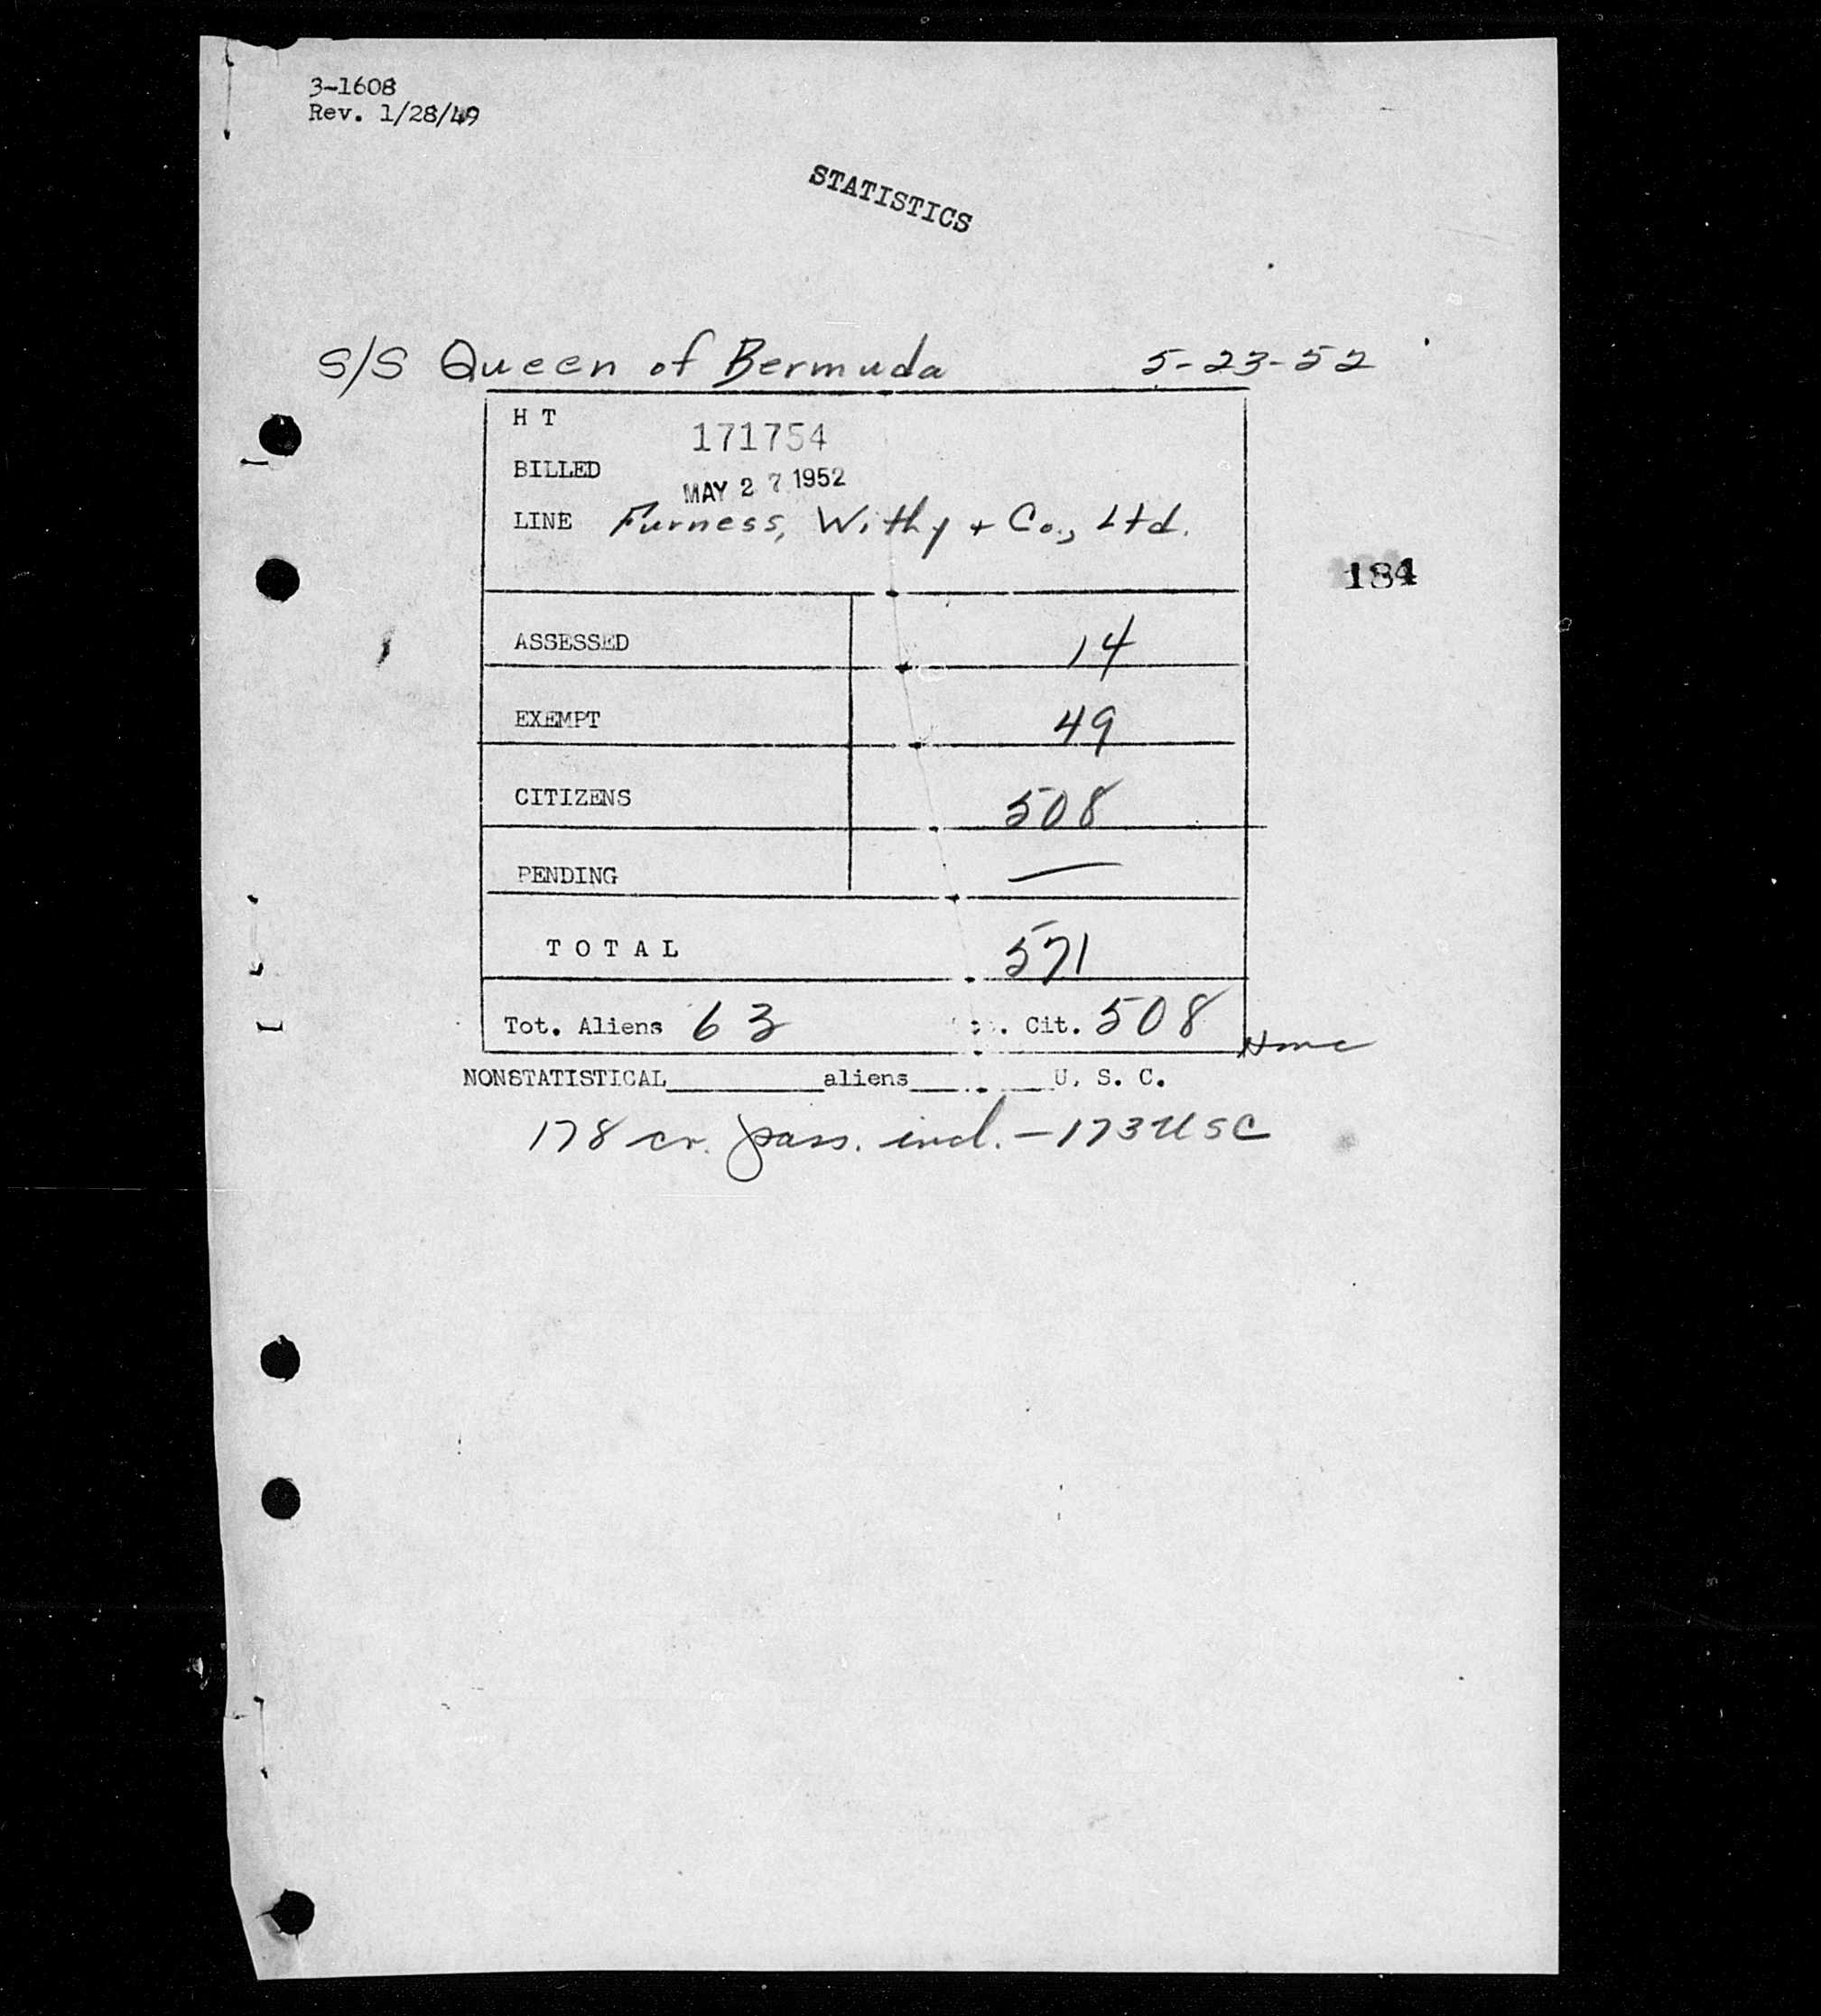 3-1608
Rev. 1/28/49
STATISTICS
S/S Queen of Bermuda 5-23-52
H T 171754
BILLED MAY 27 1952
LINE Furness, Withy + Co., Ltd.
184
ASSESSED 14
EXEMPT 49
CITIZENS 508
PENDING —
T O T A L 571
Tot. Aliens 63 . Cit. 508
NONSTATISTICAL________aliens________U. S. C.
178 cr. pass. incl. – 173 USC